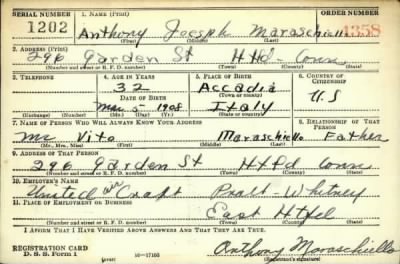 SERIAL NUMBER 1. NAME (Print) ORDER NUMBER
1202 Anthony Joesph Maraschiello 1358
(First) (Middle) (Last)
2. ADDRESS (Print)
296 Garden St Htfd Conn
(Number and street or R. F. D. number) (Town) (County) (State)
3. TELEPHONE 4. AGE IN YEARS 5. PLACE OF BIRTH 6. COUNTRY OF CITIZENSHIP
32 Accadia
DATE OF BIRTH (Town or county) U.S
Mar 5- 1908 Italy
(Exchange) (Number) (Mo.) (Day) (Yr.) (State or country)
7. NAME OF PERSON WHO WILL ALWAYS KNOW YOUR ADDRESS 8. RELATIONSHIP OF THAT PERSON
Mr Vito Maraschiello Father
(Mr., Mrs., Miss) (First) (Middle) (Last)
9. ADDRESS OF THAT PERSON
296 Garden St Htfd Conn
(Number and street or R. F. D. number) (Town) (County) (State)
10. EMPLOYER'S NAME
United air Craft Pratt- Whitney
11. PLACE OF EMPLOYMENT OR BUSINESS
East Htfd
(Number and street or R. F. D. number) (Town) (County) (State)
I AFFIRM THAT I HAVE VERIFIED ABOVE ANSWERS AND THAT THEY ARE TRUE.
REGISTRATION CARD
D. S. S. Form 1 (over) 16—17105 Anthony Maraschiello
(Registrant's signature)